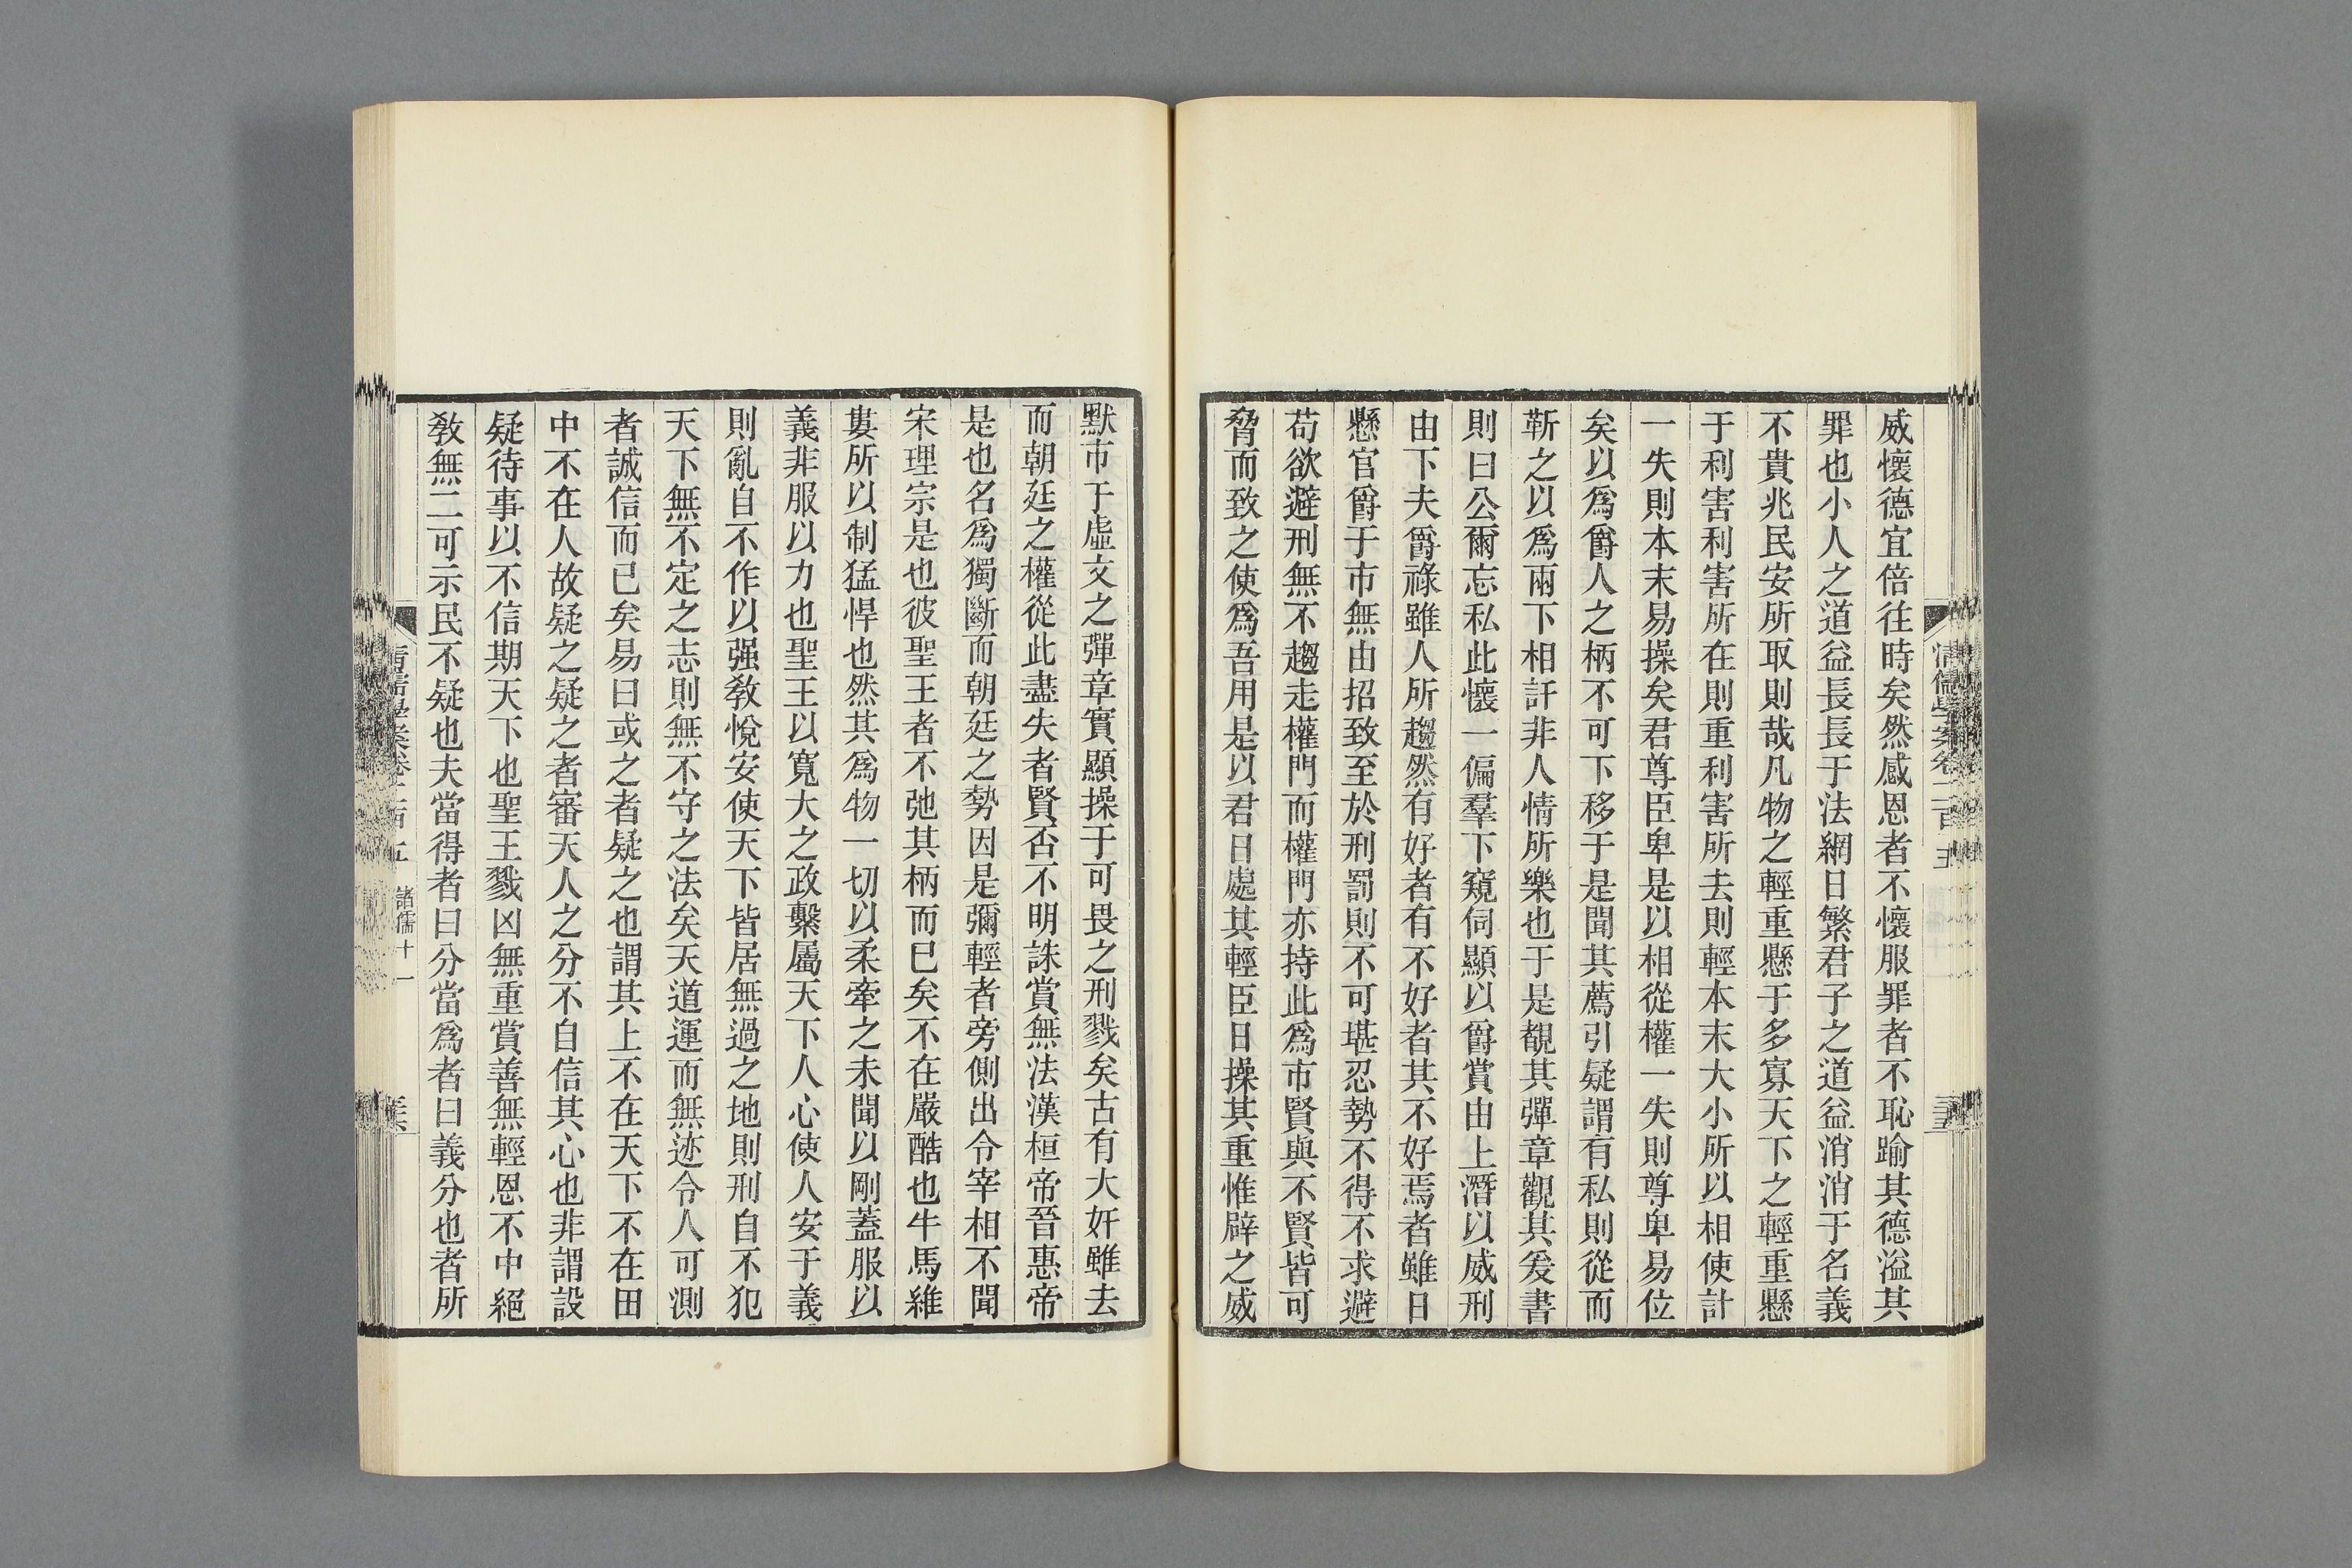 威懷德宜倍往時矣然感恩者不懷服罪者不恥踰其德溢其
罪也小人之道益長長于法網日繁君子之道益消消于名義
不貴兆民安所取則哉凡物之輕重懸于多寡天下之輕重懸
于利害利害所在則重利害所去則輕本末大小所以相使計
一失則本末易操矣君尊臣卑是以相從權一失則尊卑易位
矣以爲爵人之柄不可下移于是聞其薦引疑謂有私則從而
靳之以爲兩下相訐非人情所樂也于是覩其彈章觀其爰書
則曰公爾忘私此懷一偏羣下窺伺顯以爵賞由上潛以威刑
由下夫爵祿雖人所趨然有好者有不好者其不好焉者雖日
懸官爵于市無由招致至於刑罰則不可堪忍勢不得不求避
苟欲避刑無不趨走權門而權門亦持此爲市賢與不賢皆可
脅而致之使爲吾用是以君日處其輕臣日操其重惟辟之威
清儒學案卷二百五
默市于虛文之彈章實顯操于可畏之刑戮矣古有大奸雖去
而朝廷之權從此盡失者賢否不明誅賞無法漢桓帝晉惠帝
是也名爲獨斷而朝廷之勢因是彌輕者旁側出令宰相不聞
宋理宗是也彼聖王者不弛其柄而已矣不在嚴酷也牛馬維
婁所以制猛悍也然其爲物一切以柔牽之未聞以剛蓋服以
義非服以力也聖王以寬大之政繫屬天下人心使人安于義
則亂自不作以强敎悅安使天下皆居無過之地則刑自不犯
天下無不定之志則無不守之法矣天道運而無迹令人可測
者誠信而已矣易曰或之者疑之也謂其上不在天下不在田
中不在人故疑之疑之者審天人之分不自信其心也非謂設
疑待事以不信期天下也聖王戮凶無重賞善無輕恩不中絕
敎無二可示民不疑也夫當得者曰分當爲者曰義分也者所
清儒學案卷二百五 諸儒十一